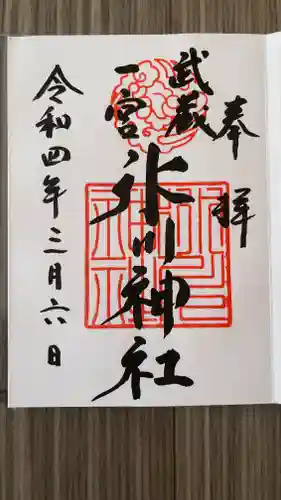 奉拝
武蔵
一宮
氷川神社
令和四年三月六日